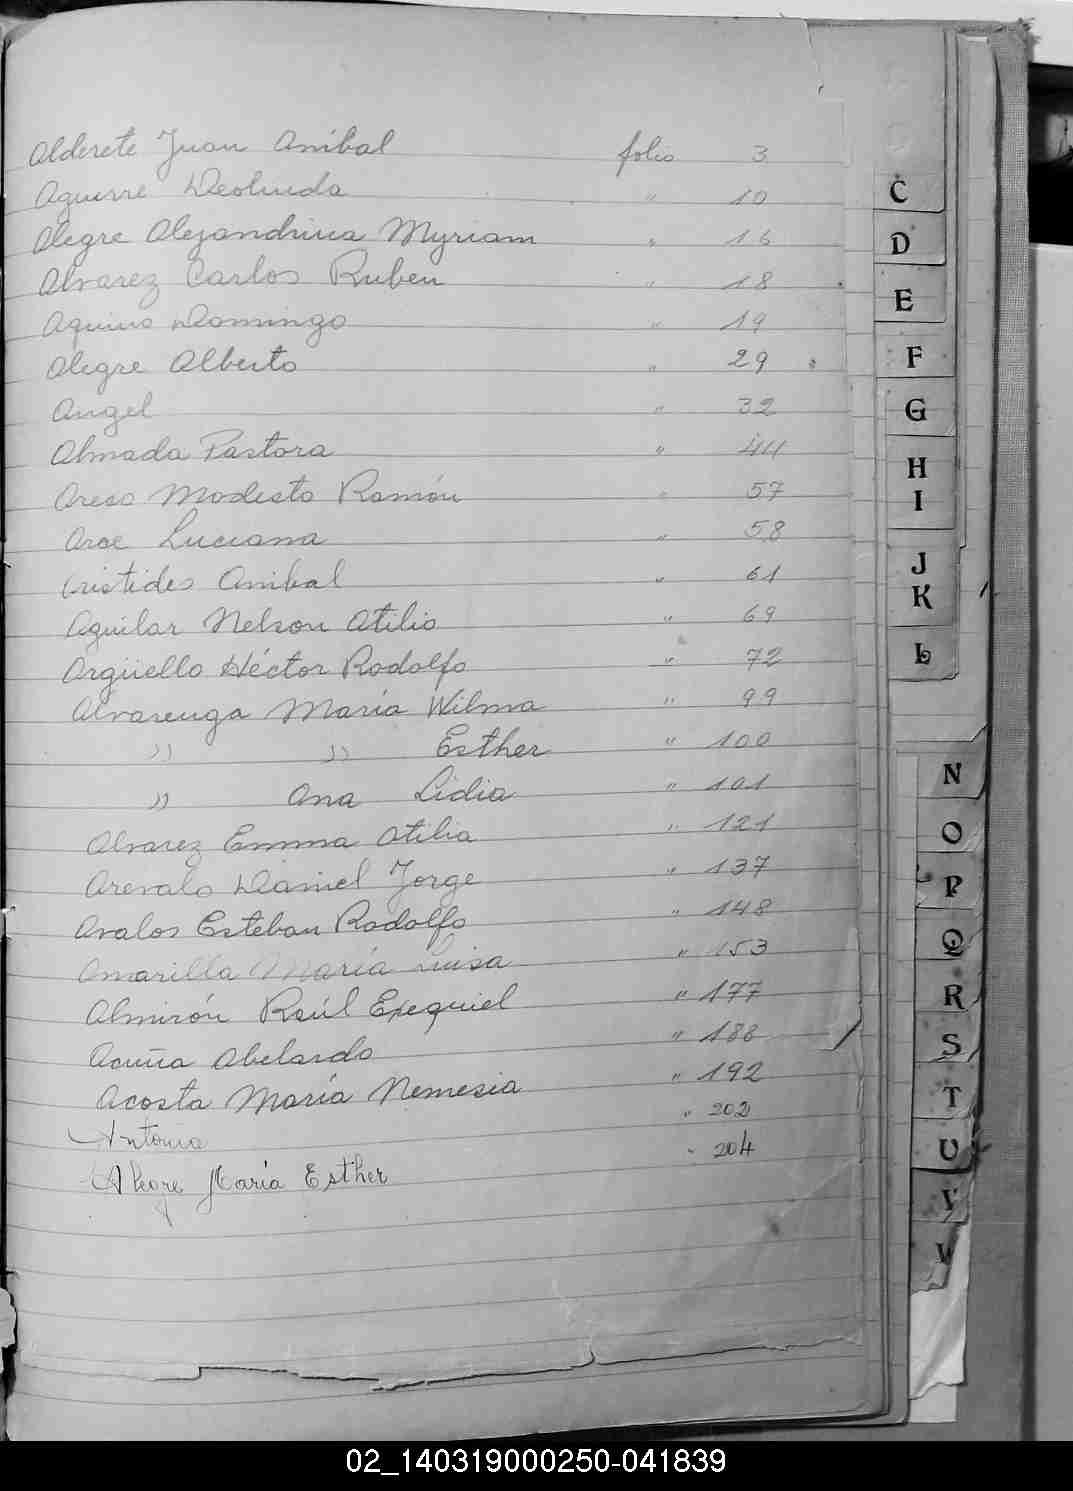 Alderete Juan Anibal folio 3
Aguirre Deolinda " 10
Alegre Alejandrina Myriam " 16
Alvarez Carlos Ruben " 18
Aquino Domingo " 19
Alegre Alberto " 29
Angel " 32
Almada Pastora " 44
Modesto Ramón " 57
Arce Luciana " 58
Aristides Anibal " 61
Aguilar Nelson Atilio " 69
Argüello Héctor Rodolfo " 72
Alvarenga María Wilma " 99
" " Esther " 100
" Ana Lidia " 101
Alvarez Emma Otilia " 121
Arevalo Daniel Jorge " 137
Avalos Esteban Rodolfo " 148
Amarilla María Luisa " 153
Almirón Raúl Exequiel " 177
Acuña Abelardo " 188
Acosta María Nemesia " 192
Antonia " 202
Alegre María Esther " 204
C
D
E
F
G
H
I
J
K
L
N
O
P
Q
R
S
T
U
V
W
02_140319000250-041839